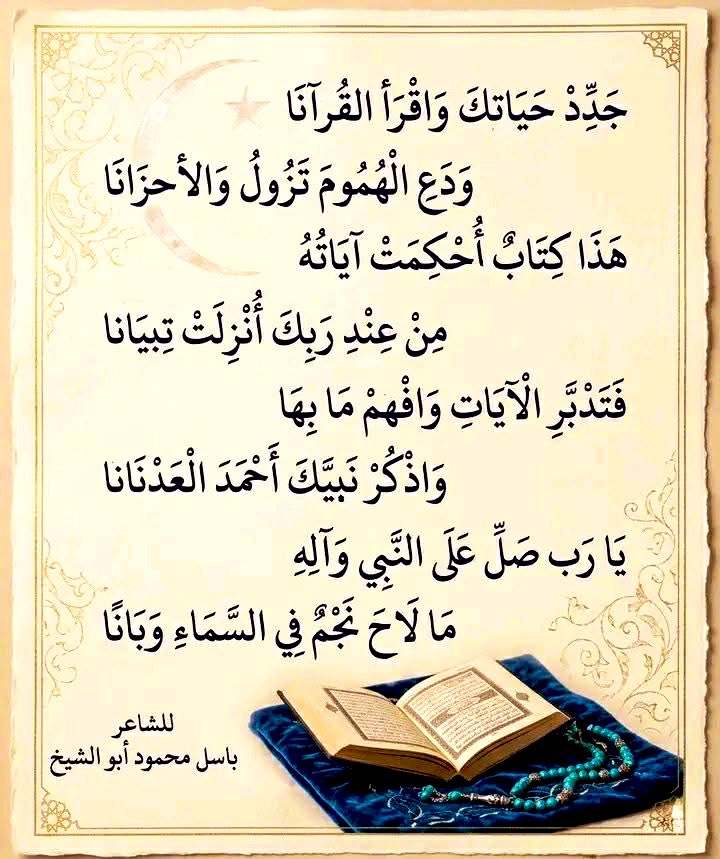 جَدِّدْ حَيَاتكَ وَاقْرَأ القُرآنَا
وَدَعِ الْهُمُومَ تَزُولُ وَالأحزَانَا
هَذَا كِتَابٌ أُحْكِمَتْ آيَاتُهُ
مِنْ عِنْدِ رَبِكَ أُنْزِلَتْ تِبيَانا
فَتَدْبَّرِ الْآيَاتِ وَافْهمْ مَا بِهَا
وَاذْكُرْ نَبيَّكَ أَحْمَدَ الْعَدْنَانا
يَا رَب صَلِّ عَلَى النَّبِي وَآلِهِ
مَا لَاحَ نَجْمٌ فِي السَّمَاءِ وَبَانًا
للشاعر
باسل محمود أبو الشيخ